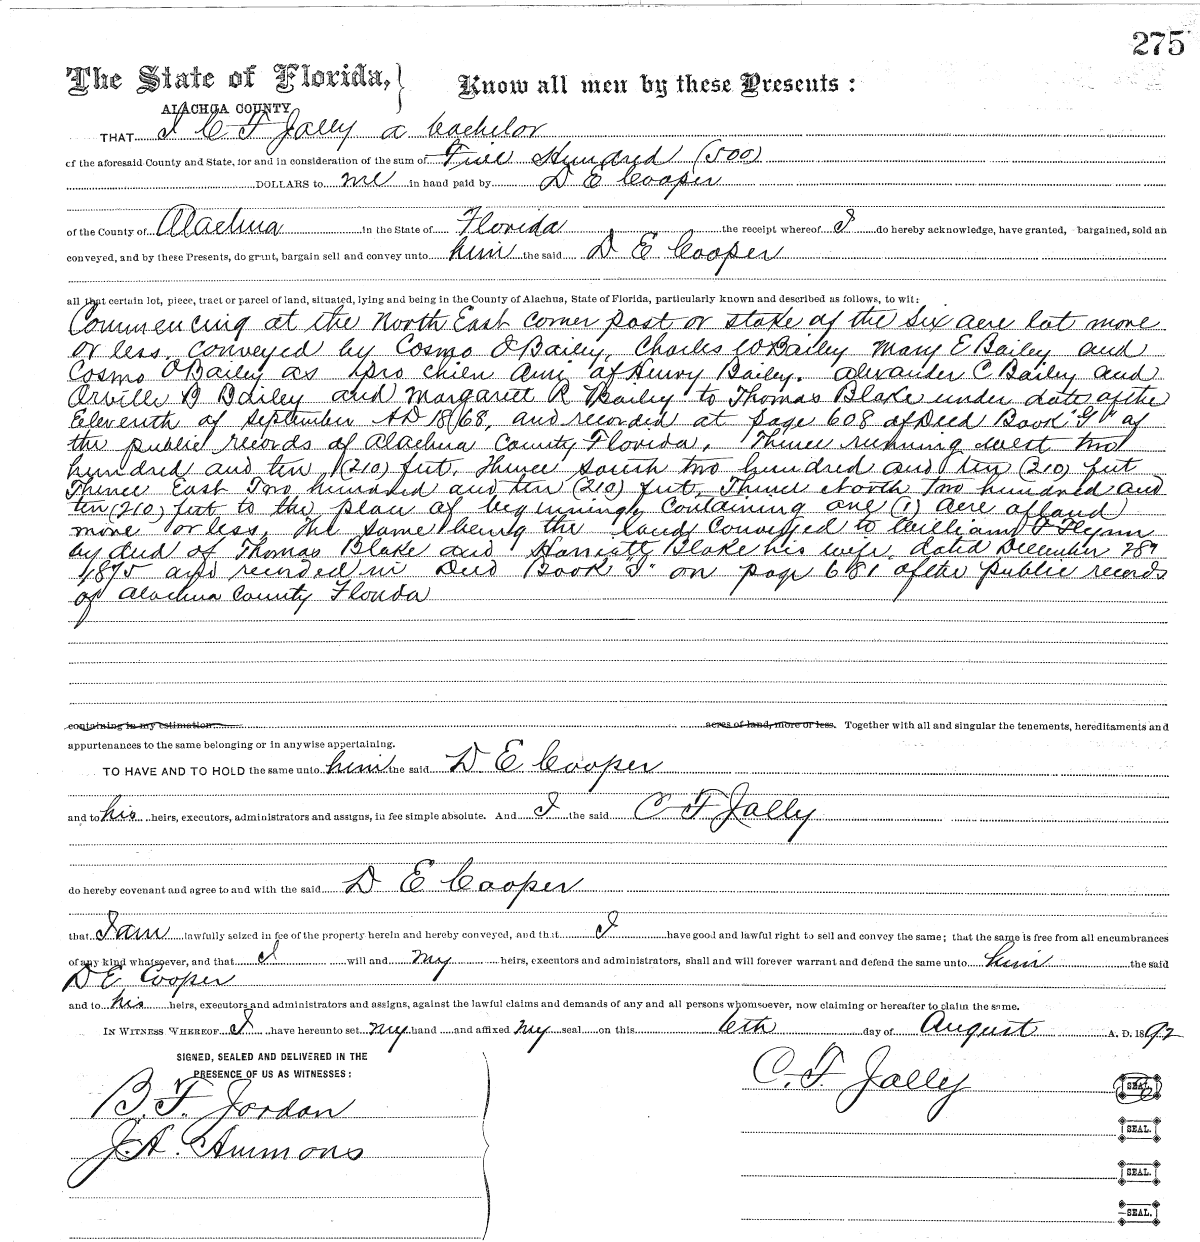 275
The State of Florida, } Know all men by these Presents :
ALACHUA COUNTY
THAT I C F Jolly a bachelor
of the aforesaid County and State, for and in consideration of the sum of Five Hundred (500)
DOLLARS to me in hand paid by D E Cooper
of the County of Alachua in the State of Florida the receipt whereof I do hereby acknowledge, have granted, bargained, sold an
conveyed, and by these Presents, do grant, bargain sell and convey unto him the said D E Cooper
all that certain lot, piece, tract or parcel of land, situated, lying and being in the County of Alachua, State of Florida, particularly known and described as follows, to wit:
Commencing at the North East corner post or stake of the six acre lot more
or less, conveyed by Cosmo O Bailey, Charles W Bailey Mary E Bailey and
Cosmo O Bailey as pro chien ami of Henry Bailey. Alexander C Bailey and
Orville B Bailey and Margarett R Bailey to Thomas Blake under date of the
Eleventh of September AD 1868, and recorded at page 608 of Deed Book "G" of
the public records of Alachua County, Florida. Thence running west two
hundred and ten (210) feet. Thence south two hundred and ten (210) feet
Thence East Two hundred and ten (210) feet, Thence North two hundred and
ten (210) feet to the place of beginning, Containing one (1) acre of land
more or less, The same being the land Conveyed to William Flynn
by deed of Thomas Blake and Harriett Blake his wife, dated December 28"
1875 and recorded in Deed Book on page 681 of the public records
of Alachua County Florida
containing in my estimation acres of land, more or less. Together with all and singular the tenements, hereditaments and
appurtenances to the same belonging or in anywise appertaining.
TO HAVE AND TO HOLD the same unto him the said D E Cooper
and to his heirs, executors, administrators and assigns, in fee simple absolute. And I the said C F Jolly
do hereby covenant and agree to and with the said D E Cooper
that I am lawfully seized in fee of the property herein and hereby conveyed, and that I have good and lawful right to sell and convey the same; that the same is free from all encumbrances
of any kind whatsoever, and that I will and my heirs, executors and administrators, shall and will forever warrant and defend the same unto him the said
D E Cooper
and to his heirs, executors and administrators and assigns, against the lawful claims and demands of any and all persons whomsoever, now claiming or hereafter to claim the same.
IN WITNESS WHEREOF I have hereunto set my hand and affixed my seal on this 6th day of August A. D. 1892
SIGNED, SEALED AND DELIVERED IN THE
PRESENCE OF US AS WITNESSES :
C. F. Jolly SEAL.
B. F. Jordan
SEAL.
J. A. Ammons
SEAL.
SEAL.